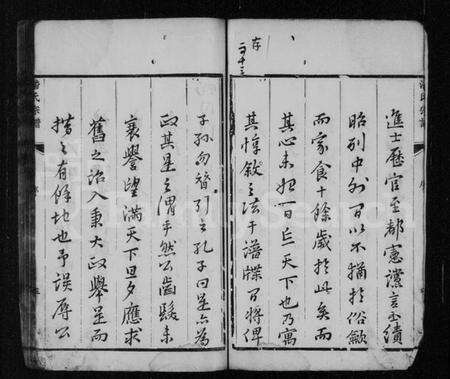 進士歷官至都憲讜言至績
昭列中外百以不猶於俗歛
而家食十餘歲於此矣而
其心未始一日忘天下也乃寓
其惇敘之法于譜牒間將俾
子孫勿替引之孔子曰是亦為
政其是之謂乎然公齒髮未
衰譽望滿天下旦夕應求
舊之詔入秉大政舉是而
措之有餘地也予誤辱公
存